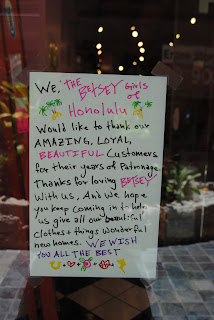 We, THE BETSEY Girls
of
Honolulu
Would like to thank our
AMAZING, LOYAL,
BEAUTIFUL Customers
for their years of Patronage.
Thanks for loving BETSEY
With us, And we hope
you keep coming in to help
us give all our beautiful
clothes + things wonderful
new homes. WE WISH
YOU ALL THE BEST